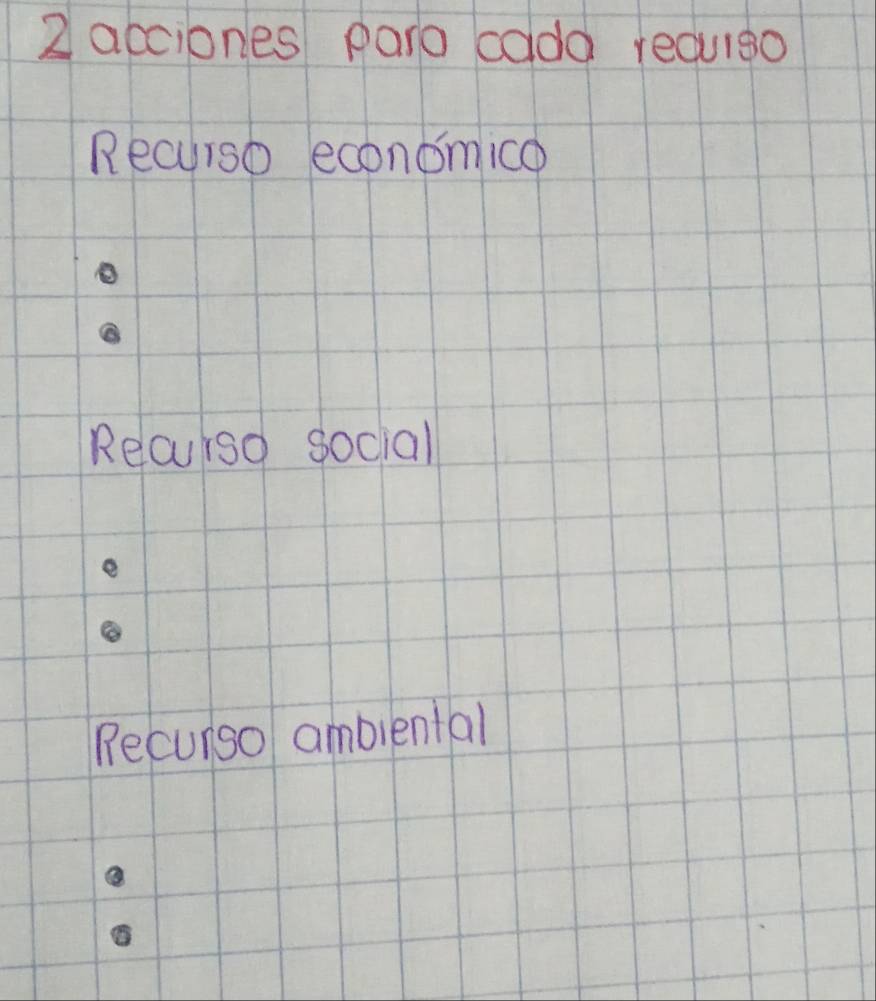 2 acciones para cada recurso
Recurso económico
•
•
Recurso social
•
•
Recurso ambiental
•
•